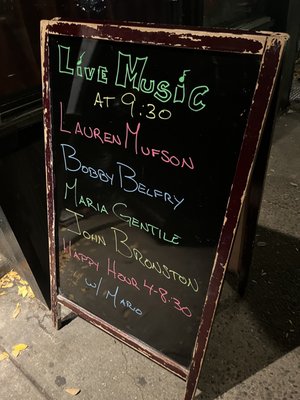 Live Music
AT 9:30
Lauren Mufson
Bobby Belfry
Maria Gentile
John Bronston
Happy Hour 4-8:30
w/ Mario